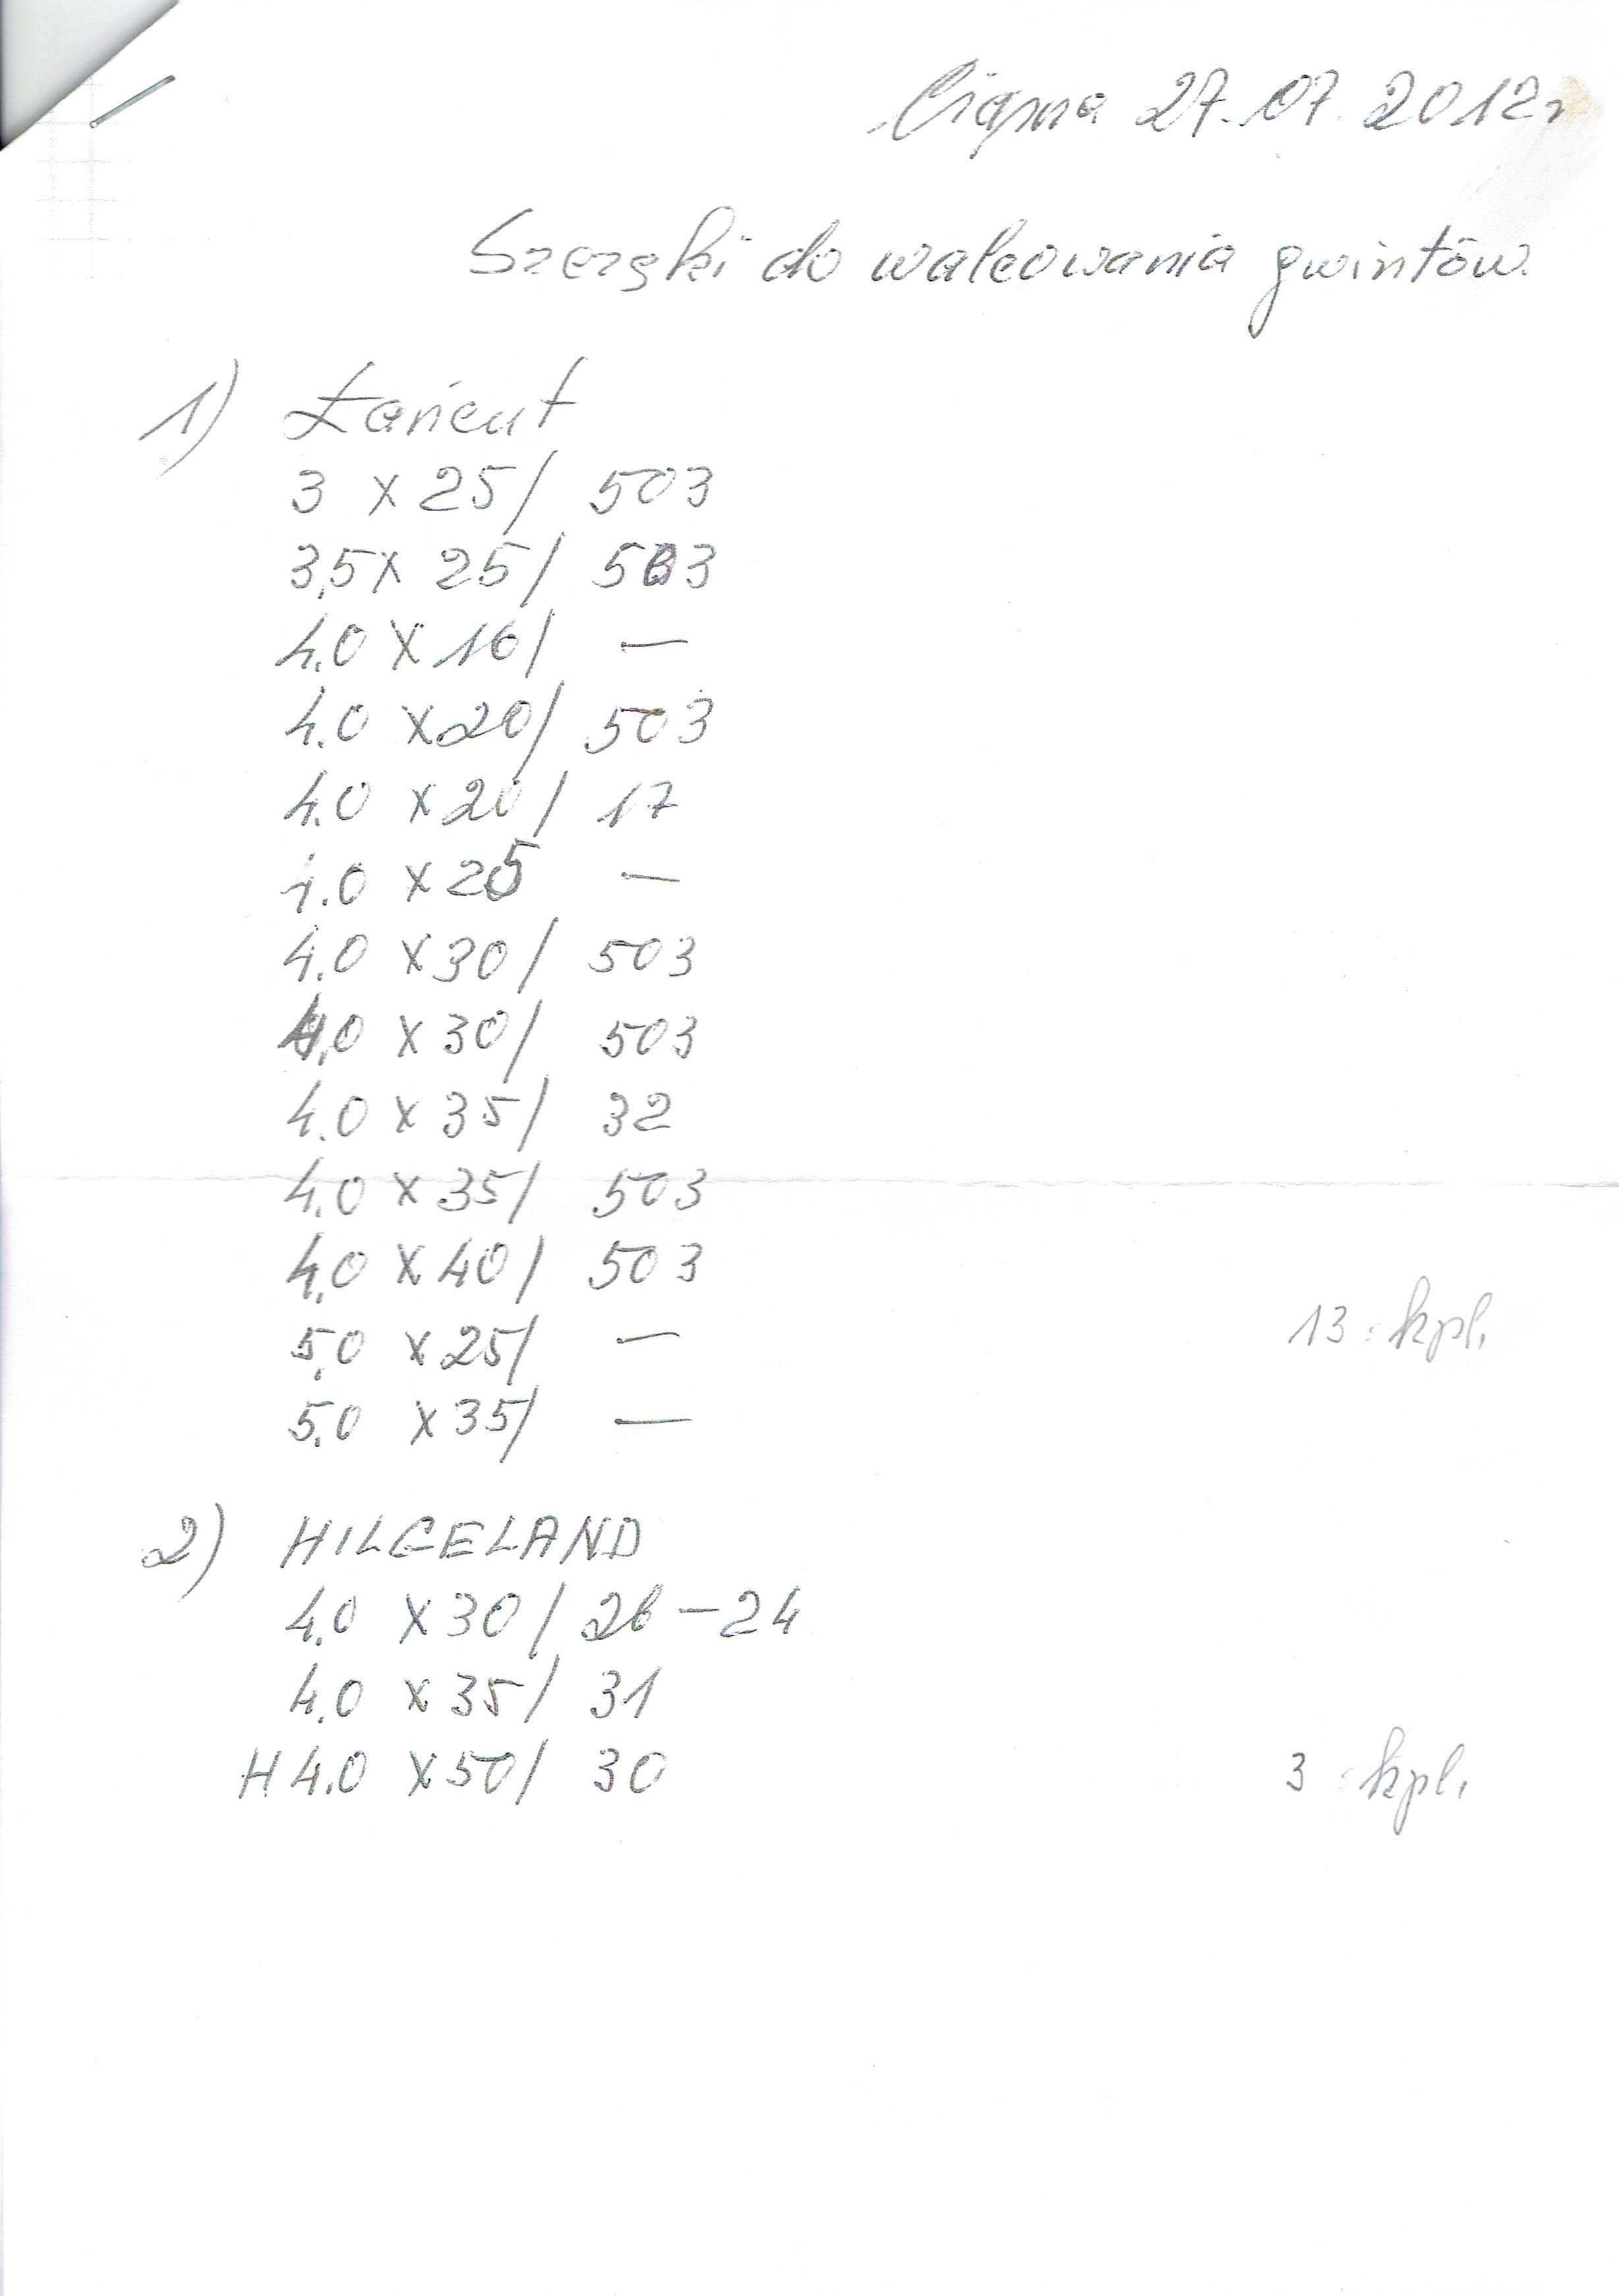 27.07.2012r
Szczęki do walcowania gwintów.
1) Łańcut
3 x 25/ 503
3,5 x 25/ 503
4.0 x 16/ —
4.0 x 20/ 503
4.0 x 20/ 17
4.0 x 25 —
4.0 x 30/ 503
4,0 x 30/ 503
4.0 x 35/ 32
4.0 x 35/ 503
4,0 x 40/ 503
5,0 x 25/ — 13 kpl.
5,0 x 35/ —
2) HILGELAND
4,0 x 30/ 26 - 24
4,0 x 35/ 31
H 4.0 x 50/ 30 3 kpl.